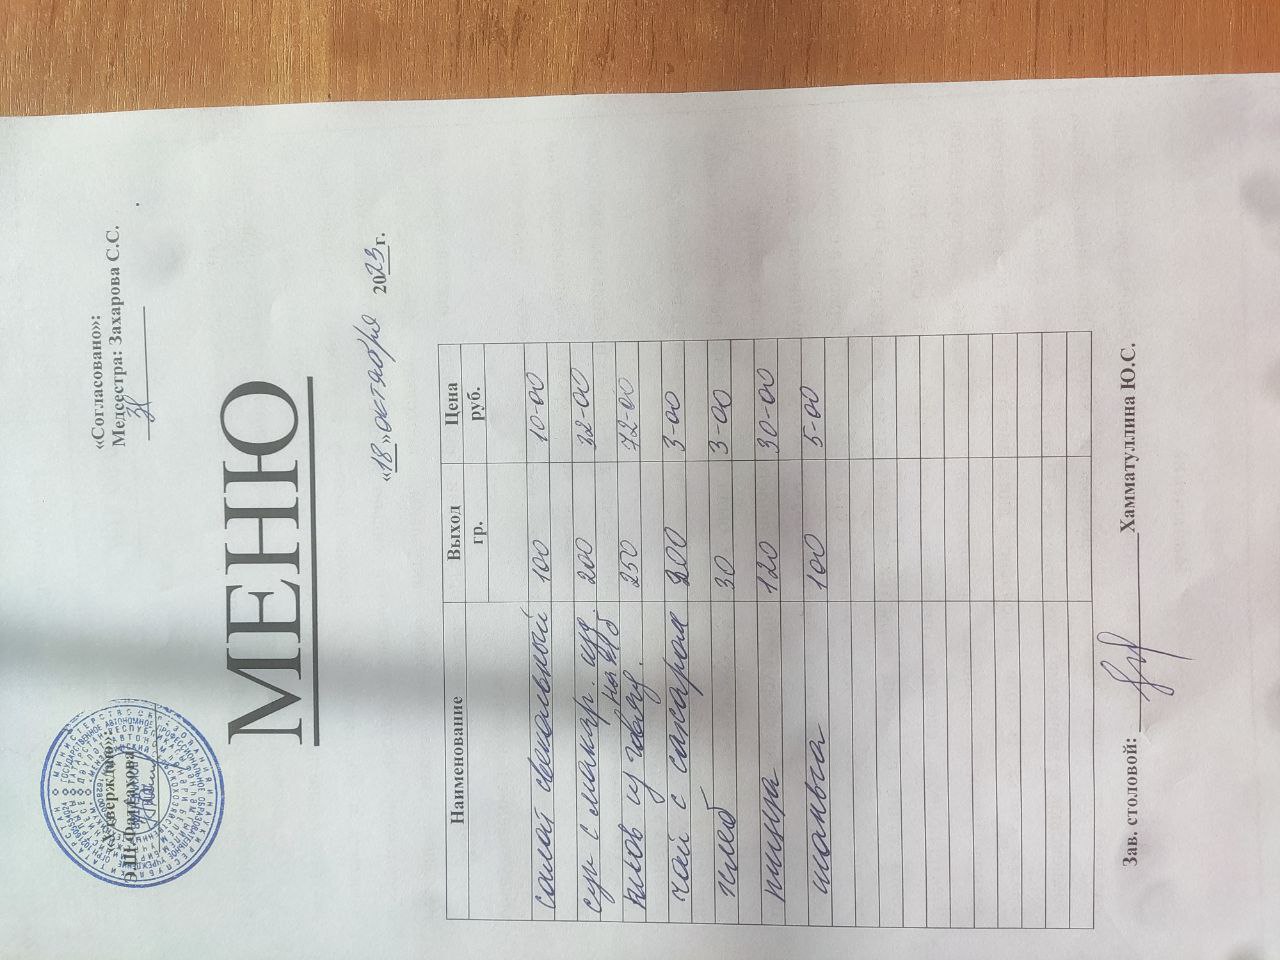 «Утверждаю»:
Э.Ш.Фандахова
«Согласовано»:
Медсестра: Захарова С.С.
МЕНЮ
«18» октября 2023г.
Наименование Выход гр. Цена руб.
салат свекольный 100 10-00
суп с макар. изд. 200 32-00
плов из говяд. 250 72-00
чай с сахаром 200 3-00
хлеб 30 3-00
пицца 120 30-00
шаньга 100 5-00
Зав. столовой: Хамматуллина Ю.С.